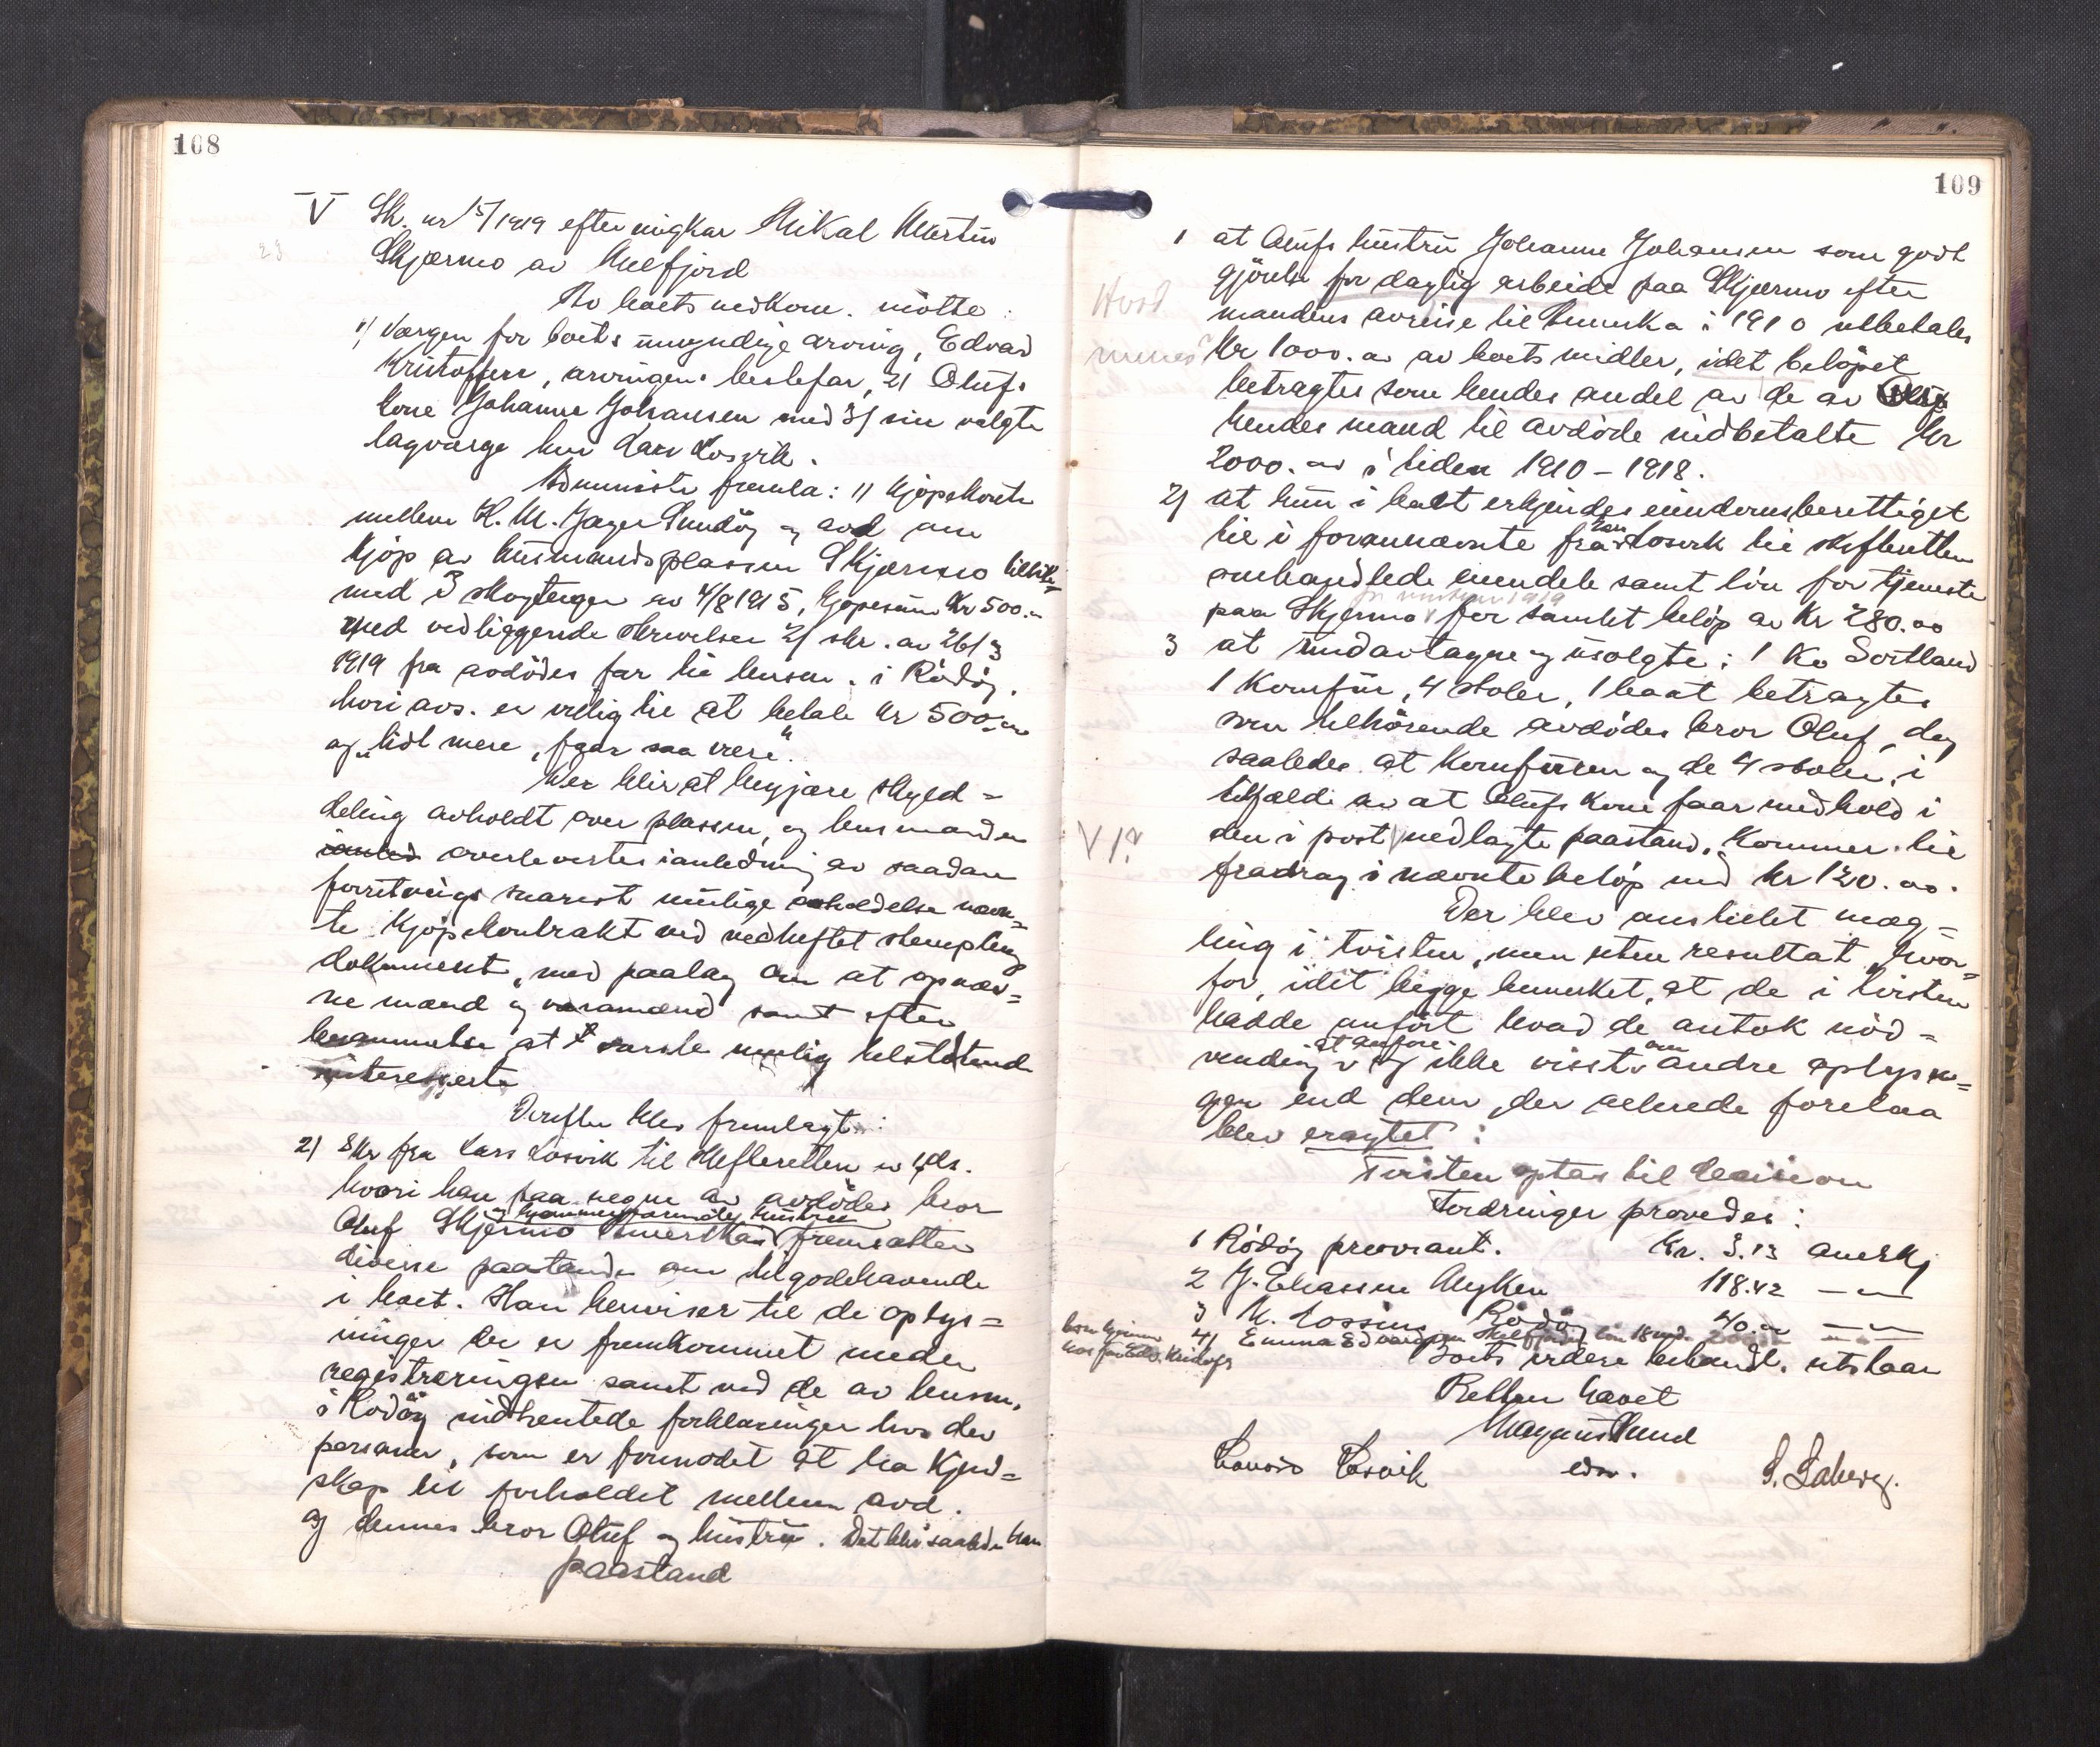 108
V Sk. nr 15/1919 efter ungkar Mikal Martin
Skjærmo av Melfjord
23
Av boets vedkom. møtte:
1) Værgen for boets umyndige arving, Edvard
Kristoffers, arvingens bestefar, 2) Olufs
kone Johanne Johansen med 3) sin valgte
lagværge hr Lars Losvik.
Administr fremla: 1) Kjøpekontr
mellem H. M. Jager Sundøy og avd om
kjøp av husmandsplassen Skjærmo
med 3 skogteiger av 4/8 1915, kjøpesum Kr 500.-
med vedliggende skrivelser 2) skr. av 26/3
1919 fra avdødes far til lensm. i Rødøy,
hvori avs. er villig til at betale kr 500.00
og "lidt mere, faar saa være".
Der blir at begjære skyld=
deling avholdt over plassen, og lensmanden
overlevertes i anledning av saadan
forretnings snarest mulige avholdelse nævn=
te kjøpekontrakt med vedheftet
dokument, med paalæg om at opnæv=
ne mænd og varamænd samt efter
berammelse at varsle mulig tilstøtende
interesserte
Derefter blev fremlagt:
2) Skr fra Lars Losvik til skifteretten av 4ds.
hvori han paa vegne av avdødes bror
og hjemmeværende hustru
Oluf Skjærmo Amerika fremsætter
diverse paastande om tilgodehavende
i boet. Han henviser til de oplys=
ninger der er fremkommet under
registreringen samt ved de av lensm.
i Rødøy indhentede forklaringer hos de
personer, som er formodet at ha kjend=
skap til forholdet mellem avd.
og dennes bror Oluf og hustru. Det blir saaledes hans
paastand
109
1 at Olufs hustru Johanne Johansen som godt
gjørelse for daglig arbeide paa Skjærmo efter
Hvad
mandens avreise til Amerika i 1910 utbetales
menes
Kr 1000.00 av boets midler, idet beløpet
betragtes som hendes andel av de av
hendes mand til avdøde indbetalte Kr
2000.00 i tiden 1910 – 1918.
2) at hun i boet erkjendes eiendomsberettiget
til i forannævnte fra Losvik til skifteretten
omhandlede eiendele samt løn for tjeneste
paa Skjærmo for samlet beløp av Kr 280.00
3 at undavtagne og usolgte: 1 ko Sortland
1 komfur, 4 stoler, 1 baat betragtes
som tilhørende avdødes bror Oluf, dog
saaledes at komfuren og de 4 stoler, i
tilfælde av at Olufs kone faar medhold i
V 1?
den i post 1 nedlagte paastand, kommer til
fradrag i nævnte beløp med kr 120.00.
Der blev anstillet mæg=
ling i tvisten, men uten resultat, hvor=
for, idet begge bemerket, at de i tvisten
hadde anført hvad de antok nød=
at anføre om
vendig og ikke visste andre oplysn=
ger end dem, der allerede forelaa
blev eragtet:
Tvisten optas til decision
Fordringer prøvedes:
1 Rødøy proviant. Kr. 3.13 anerkj
2 J. Eliassen Myken 118.42 — " —
3 K. Lossius Rødøy 40.00 — " —
4) Emma Edvardsen Melfjord løn 18 md. — " —
hos far Edv. Kristoffs
Boets videre behandl. utstaar
Retten hævet
Magnus Lund
edv.
Lauritz Losvik
S. Laberg.